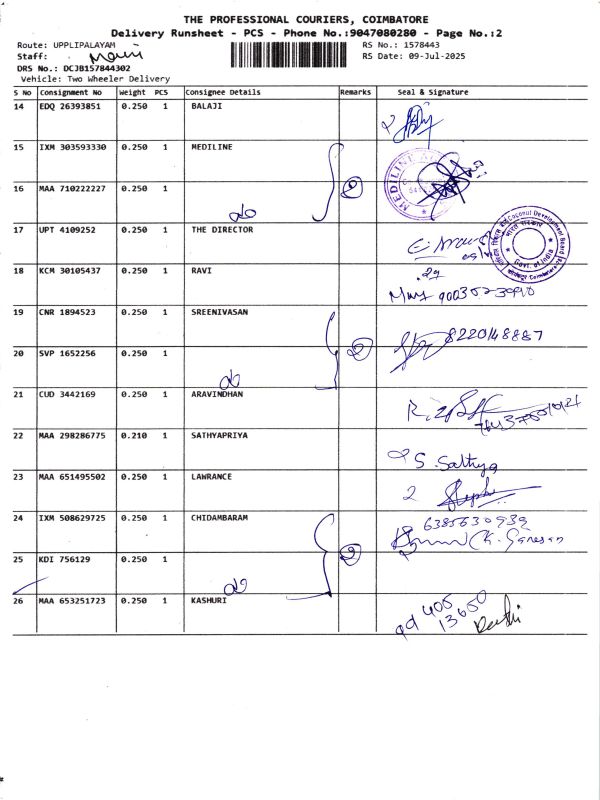 THE PROFESSIONAL COURIERS, COIMBATORE
Delivery Runsheet - PCS - Phone No.:9047080280 - Page No.:2
Route: UPPLIPALAYAM RS No.: 1578443
Staff: RS Date: 09-Jul-2025
DRS No.: DCJB157844302
Vehicle: Two Wheeler Delivery
S No Consignment No Weight PCS Consignee Details Remarks Seal & Signature
14 EDQ 26393851 0.250 1 BALAJI
15 IXM 303593330 0.250 1 MEDILINE
MEDILINE
16 MAA 710222227 0.250 1
2
do
17 UPT 4109252 0.250 1 THE DIRECTOR
Coconut Development Board
Govt. of India
18 KCM 30105437 0.250 1 RAVI
19 CNR 1894523 0.250 1 SREENIVASAN
8220148887
20 SVP 1652256 0.250 1
2
do
21 CUD 3442169 0.250 1 ARAVINDHAN
22 MAA 298286775 0.210 1 SATHYAPRIYA
S. Sathya
23 MAA 651495502 0.250 1 LAWRANCE
24 IXM 508629725 0.250 1 CHIDAMBARAM
6385630939
Ch. Ganesan
25 KDI 756129 0.250 1
2
do
26 MAA 653251723 0.250 1 KASHURI